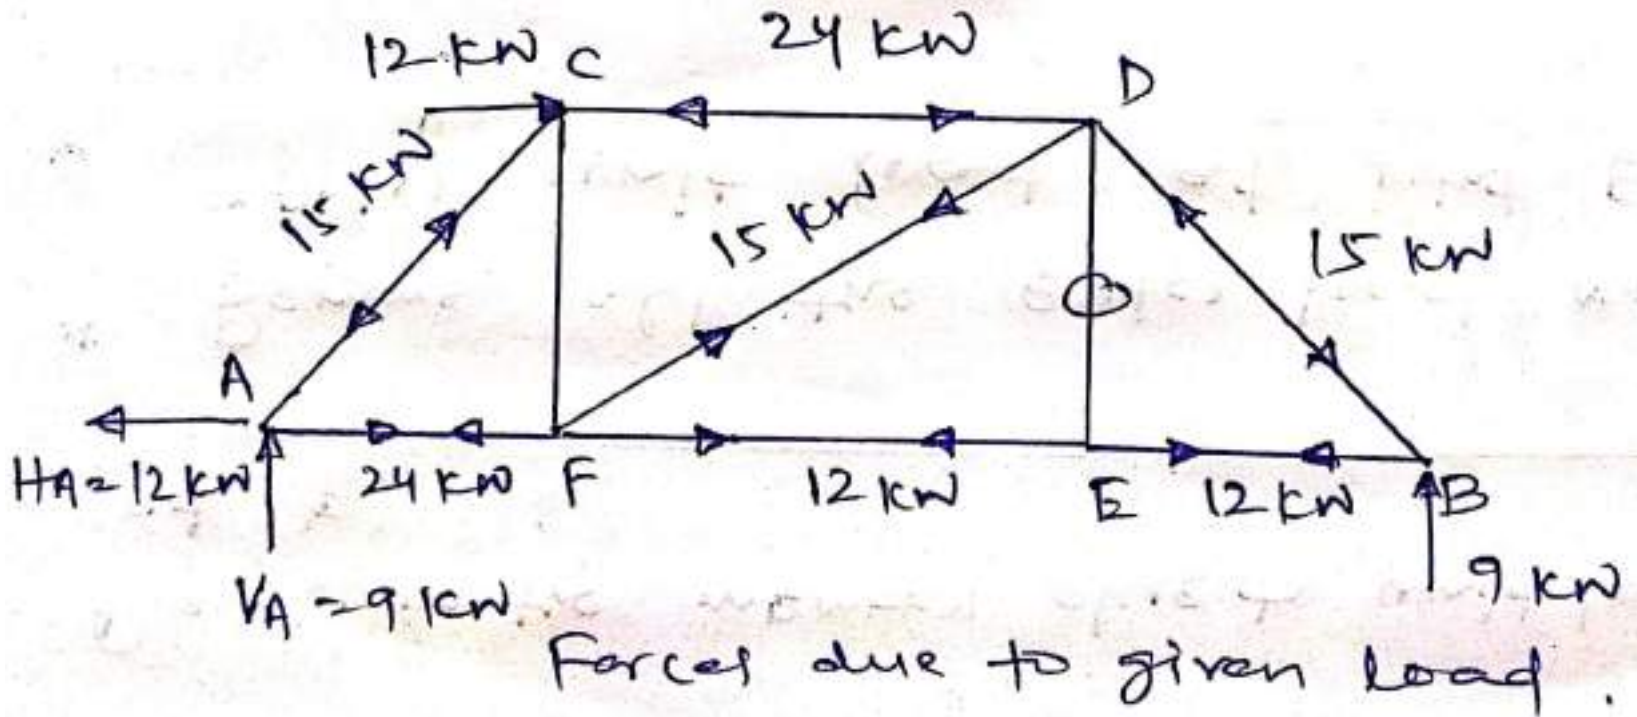 12 KN C
24 KN
D
15 KN
15 KN
15 KN
A
HA=12 KN
24 KN
F
12 KN
E
12 KN
B
VA=9 KN
9 KN
Forces due to given load.